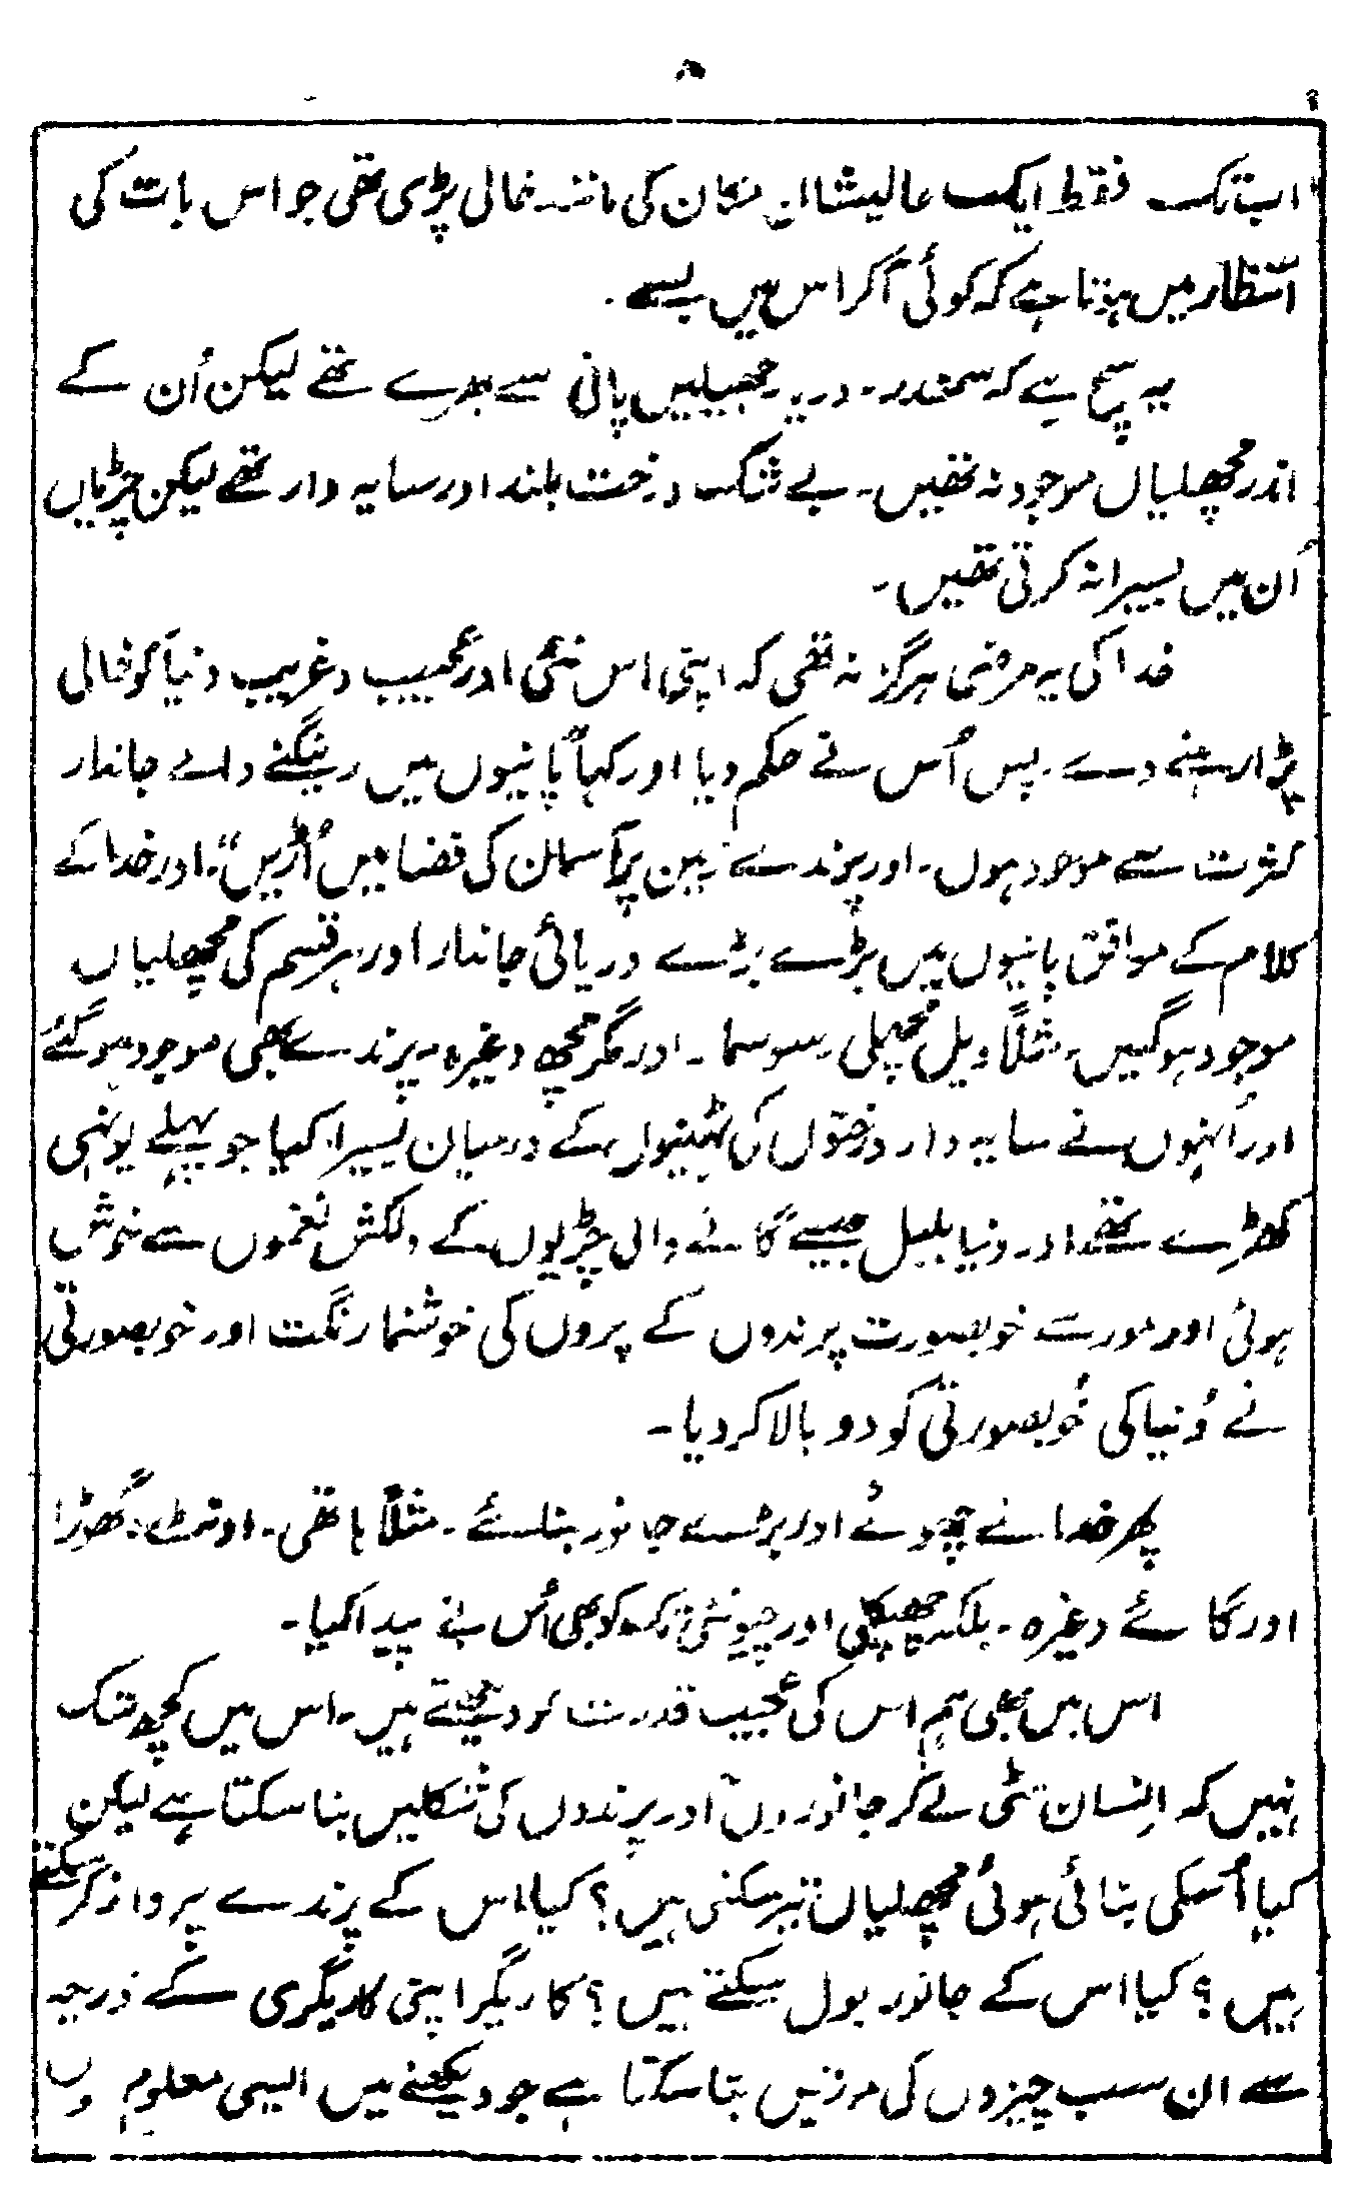 ۸
ابتک فقط ایک عالیشان مکان کی مانند خالی پڑی تھی جو اس بات کی
انتظار میں ہوتا ہے کہ کوئی آکر اس میں بسے۔
یہ سچ ہے کہ سمندر۔ دریا۔ جھیلیں پانی سے بھرے تھے لیکن اُن کے
اندر مچھلیاں موجود نہ تھیں۔ بے شک درخت بلند اور سایہ دار تھے لیکن چڑیاں
اُن میں بسیرا نہ کرتی تھیں۔
خدا کی یہ مرضی ہرگز نہ تھی کہ اپنی اس نئی اور عجیب و غریب دنیا کو خالی
پڑا رہنے دے۔ پس اُس نے حکم دیا اور کہا "پانیوں میں رینگنے والے جاندار
کثرت سے موجود ہوں۔ اور پرندے زمین پر آسمان کی فضا میں اُڑیں"۔ اور خدا کے
کلام کے موافق پانیوں میں بڑے بڑے دریائی جاندار اور ہر قسم کی مچھلیاں
موجود ہوگئیں۔ مثلاً ویل مچھلی۔ سوسمار۔ اور مگرمچھ وغیرہ۔ پرندے بھی موجود ہوگئے
اور اُنہوں نے سایہ دار درختوں کی ٹہنیوں کے درمیان بسیرا کیا جو پہلے یونہی
کھڑے تھے اور دنیا بلبل جیسے گانے والی چڑیوں کے دلکش نغموں سے خوش
ہوئی اور مور سے خوبصورت پرندوں کے پروں کی خوشنما رنگت اور خوبصورتی
نے دُنیا کی خُوبصورتی کو دو بالا کر دیا۔
پھر خدا نے چھوٹے اور بڑے جانور بنائے۔ مثلاً ہاتھی۔ اونٹ۔ گھوڑا
اور گائے وغیرہ۔ بلکہ چھپکلی اور چیونٹی تک کو بھی اُس نے پیدا کیا۔
اس میں بھی ہم اس کی عجیب قدرت کو دیکھتے ہیں۔ اس میں کچھ شک
نہیں کہ اِنسان مٹی لے کر جانوروں اور پرندوں کی شکلیں بنا سکتا ہے لیکن
کیا اُسکی بنائی ہوئی مچھلیاں تیر سکتی ہیں؟ کیا اس کے پرندے پرواز کر سکتے
ہیں؟ کیا اس کے جانور بول سکتے ہیں؟ کاریگر اپنی کاریگری کے ذریعہ
سے ان سب چیزوں کی مورتیں بنا سکتا ہے جو دیکھنے میں ایسی معلوم